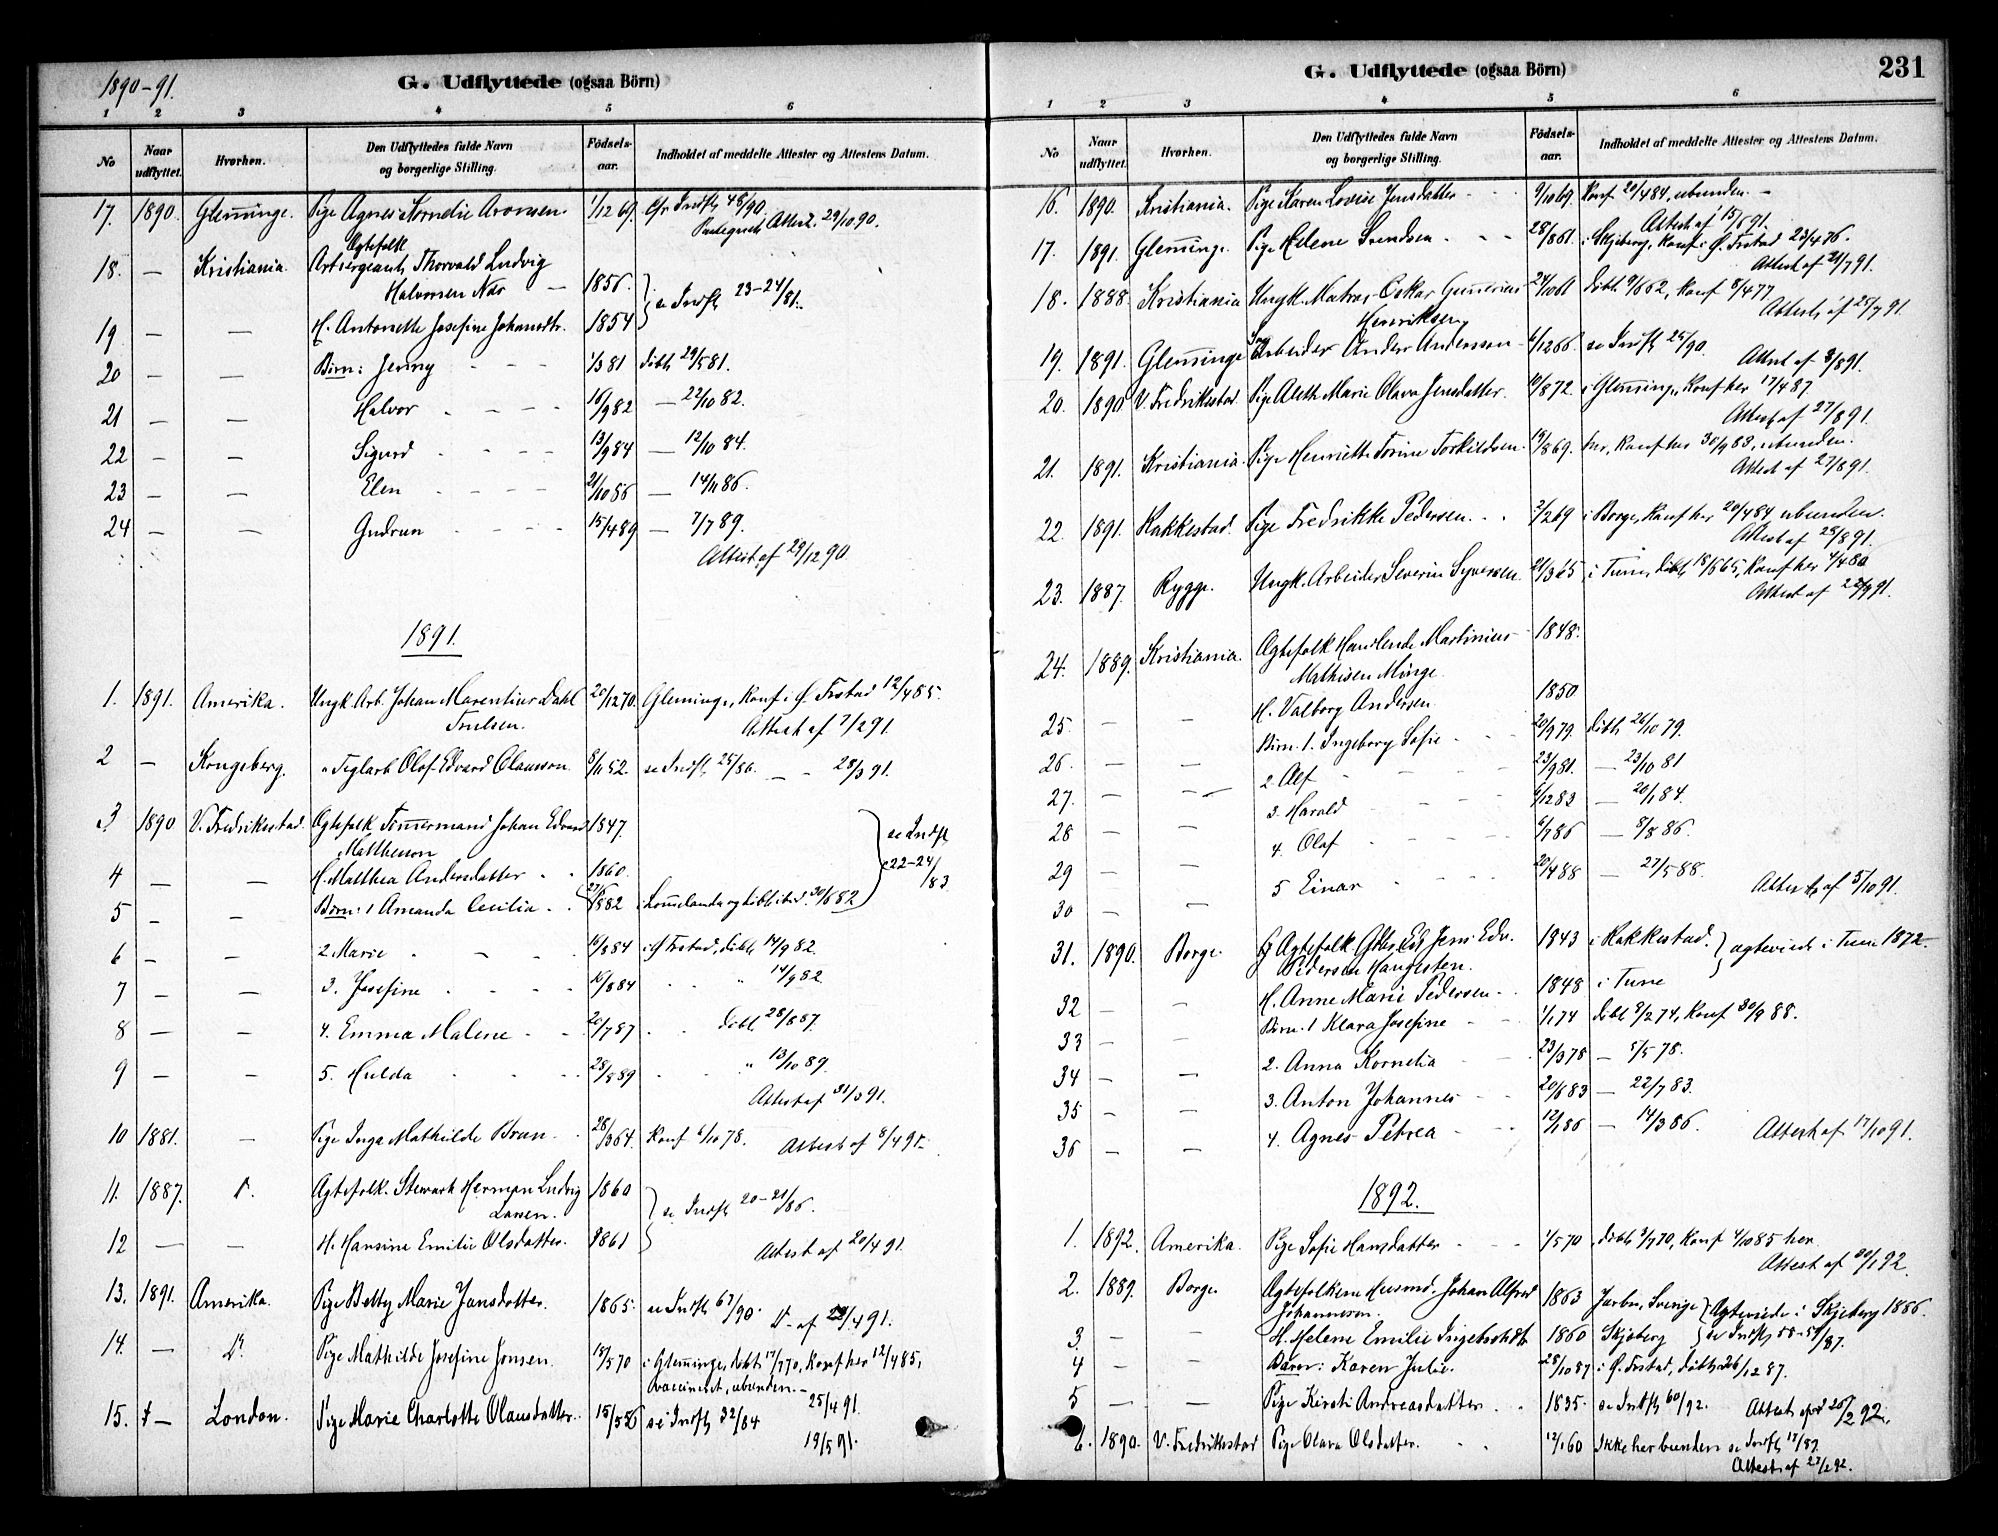 1890-91.
G. Udflyttede (ogsaa Börn)
1 2 3 4 5 6
No Naar udflyttet. Hvorhen. Den Udflyttedes fulde Navn og borgerlige Stilling. Födsels-aar. Indholdet af meddelte Attester og Attestens Datum.
17. 1890. Glemminge. Pige Agnes Kornelie Aronsen. 1/12 69. Cfr Indfl. 48/90.
Attest. 29/10 90.
Ægtefolk
18. — Kristiania. Thorvald Ludvig
Halvorsen Næs — 1856. se Indfl. 23-24/81.
19 — — H. Antonette Josefine Johansdtr. 1854
20 — — Börn: Jenny - - - 1/3 81 döbt 29/5 81.
21 — — Halvor - - - 16/9 82 — 22/10 82.
22 — — Sigurd - - - 13/9 84 — 12/10 84.
23 — — Elen - - - 21/10 86 — 14/11 86.
24 — — Gudrun - - - 15/4 89 — 7/7 89.
Attest af 29/12 90
1891.
1. 1891. Amerika. Ungk. Arb. Johan Marentius Dahl 20/12 70. Glemminge, Konf. i Ø. Frstad 12/4 85.
Truelsen. Attest af 7/2 91.
2 — Kongsberg. " Teglarb. Olof Edvard Olausson. 8/11 52. se Indfl. 25/86. — - 28/3 91.
3. 1890 V. Fredrikstad. Ægtefolk Tömmermand Johan Edvard 1847. se Indfl.
Matthesson 22-24/83
4 — — H. Matthea Andersdatter - - 1860.
5 — — Börn: 1 Amanda Cecilia - - 27/5 82
6 — — 2 Marie - - - 16/8 84 i Ø Frstad, döbt 14/9 82.
7 — — 3. Josefine - - - 16/8 84 - - " 14/9 82
8 — — 4. Emma Malene - - 20/7 87 - - döbt 28/8 87.
9 — — 5. Hulda - - - 28/8 89 - - " 13/10 89.
Attest af 31/3 91.
10 1881. — Pige Inga Mathilde Brun - 28/3 64. Konf 6/10 78. Attest af 8/4 91.
11. 1887. Ægtefolk. Stewart Herman Ludvig 1860
Larsen. se Indfl. 20-21/86.
12 — — H. Hansine Emilie Olsdatter. 1861
Attest af 20/4 91.
13. 1891. Amerika. Pige Betty Marie Jansdotter. 1865. se Indfl. 67/90. D- af 23/4 91.
14. — D. Pige Mathilde Josefine Jonsen. 18/5 70 i Glemminge, döbt 17/7 70, Konf her 12/4 85,
vaccineret, ubunden.— 25/4 91.
15. — London. Pige Marie Charlotte Olausdatter. 15/5 56 se Indfl. 32/84
19/5 91.
G. Udflyttede (ogsaa Börn) 231
1 2 3 4 5 6
No Naar udflyttet. Hvorhen. Den Udflyttedes fulde Navn og borgerlige Stilling. Födsels-aar. Indholdet af meddelte Attester og Attestens Datum.
16. 1890. Kristiania. Pige Karen Lovise Jensdatter - - 9/10 69. Konf 20/4 84, ubunden. —
Attest af 15/6 91.
17. 1891. Glemminge. Pige Helene Svendsen - - 28/8 61 i Skjeberg, Konf i Ø. Frstad 23/4 76.
Attest af 21/7 91.
18. 1888. Kristiania Ungk. Matros Oskar Gunerius 24/10 61 döbt 9/6 62, Konf 8/4 77
Henriksen Attest af 25/7 91.
19. 1891. Glemminge Arbeider Anders Andersson - 6/12 66. se Indfl. 25/90.
Attest af 8/8 91.
20. 1890 V. Fredrikstad. Pige Aleth Marie Olava Jensdatter. 10/8 72. i Glemminge, Konf her 17/4 87.
Attest af 27/8 91.
21. 1891. Kristiania. Pige Henriette Torine Torkildsen. 18/8 69. her, Konf her 30/9 83, ubunden.
Attest af 27/8 91.
22. 1891. Rakkestad. Pige Fredrikke Pedersen. - - 2/2 69 i Borge, Konf her 20/4 84 ubunden.
Attest af 28/8 91.
23. 1887. Rygge. Ungk. Arbeider Severin Syversen. 21/3 65, i Tune, döbt 18/6 65, Konf her 4/4 80
Attest af 22/9 91.
24. 1889. Kristiania. Ægtefolk Handlende Martinius 1848.
Mathisen Minge.
25. — — H. Valborg Andersen 1850
26 — — Börn. 1. Ingeborg Sofie - - 20/9 79. döbt 26/10 79.
27. — — 2. Alf - - 23/9 81. — 23/10 81
28 — — 3. Harald - - 6/12 83 — 20/1 84.
29 — — 4. Olaf - - 6/7 86 — 8/8 86.
30 — — 5 Einar - - 20/4 88 — 27/5 88.
Attest af 5/10 91.
31. 1890. Borge. Ægtefolk Jens Edv. 1843 i Rakkestad. ægteviede i Tune 1872
Pedersen Haugesten.
32 — — H. Anne Marie Pedersen - - 1848 i Tune
33 — — Börn. 1 Klara Josefine - - 1/1 74 döbt 8/2 74, Konf 30/9 88.
34 — — 2. Anna Kornelia - - 23/3 78 — 5/5 78.
35 — — 3. Anton Johannes - - 20/6 83 — 22/7 83.
36 — — 4. Agnes Petrea - - 12/1 86 — 14/3 86. Attest af 17/10 91.
1892.
1. 1892. Amerika. Pige Sofie Hansdatter - - 1/5 70, döbt 3/7 70, Konf 4/10 85 her.
Attest af 20/1 92.
2. 1889. Borge Ægtefolkene Husmd. Johan Alfred 1863 Jarbn, Sverige Ægteviede i Skjeberg 1886
Johannesen.
3 — — H. Helene Emilie Ingebretsdtr 1860 Skjeberg se Indfl. 58-59/87.
4 — — Barn: Karen Julie. 28/10 87 i Ø. Frstad, döbt 26/12 87.
5 — — Pige Kirsti Andreasdatter - - 1835. se Indfl. 60/92. Attest af 26/2 92.
6. 1890. V. Fredrikstad Pige Olava Olsdatter. - - 12/1 60 Ikke her bunden se Indfl. 18/87.
Attest af 27/2 92.